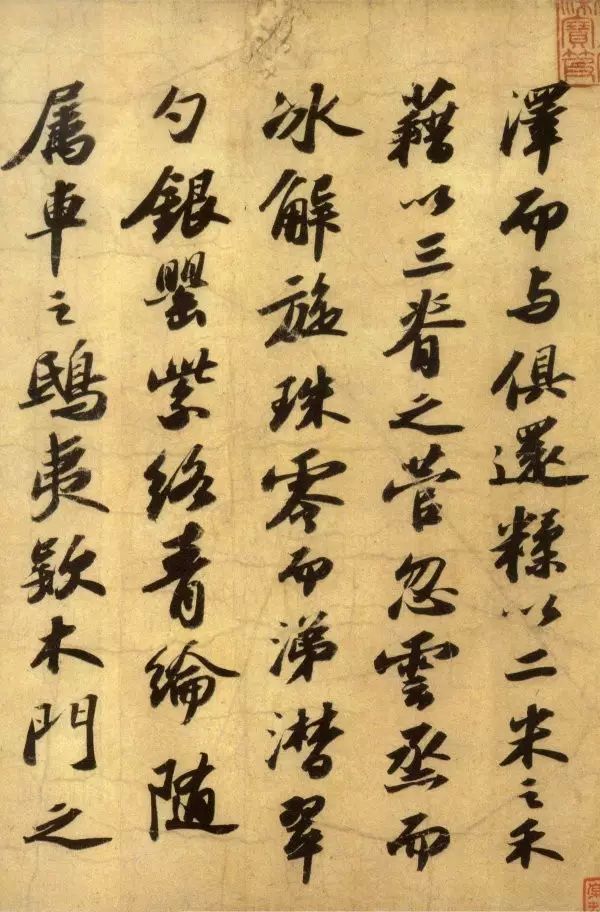 澤而与俱還糅以二米之禾
藉以三脊之菅忽雲烝而
冰解旋珠零而涕潸翠
勺銀罌紫絡青綸随
属車之鴟夷款木門之
寶笈